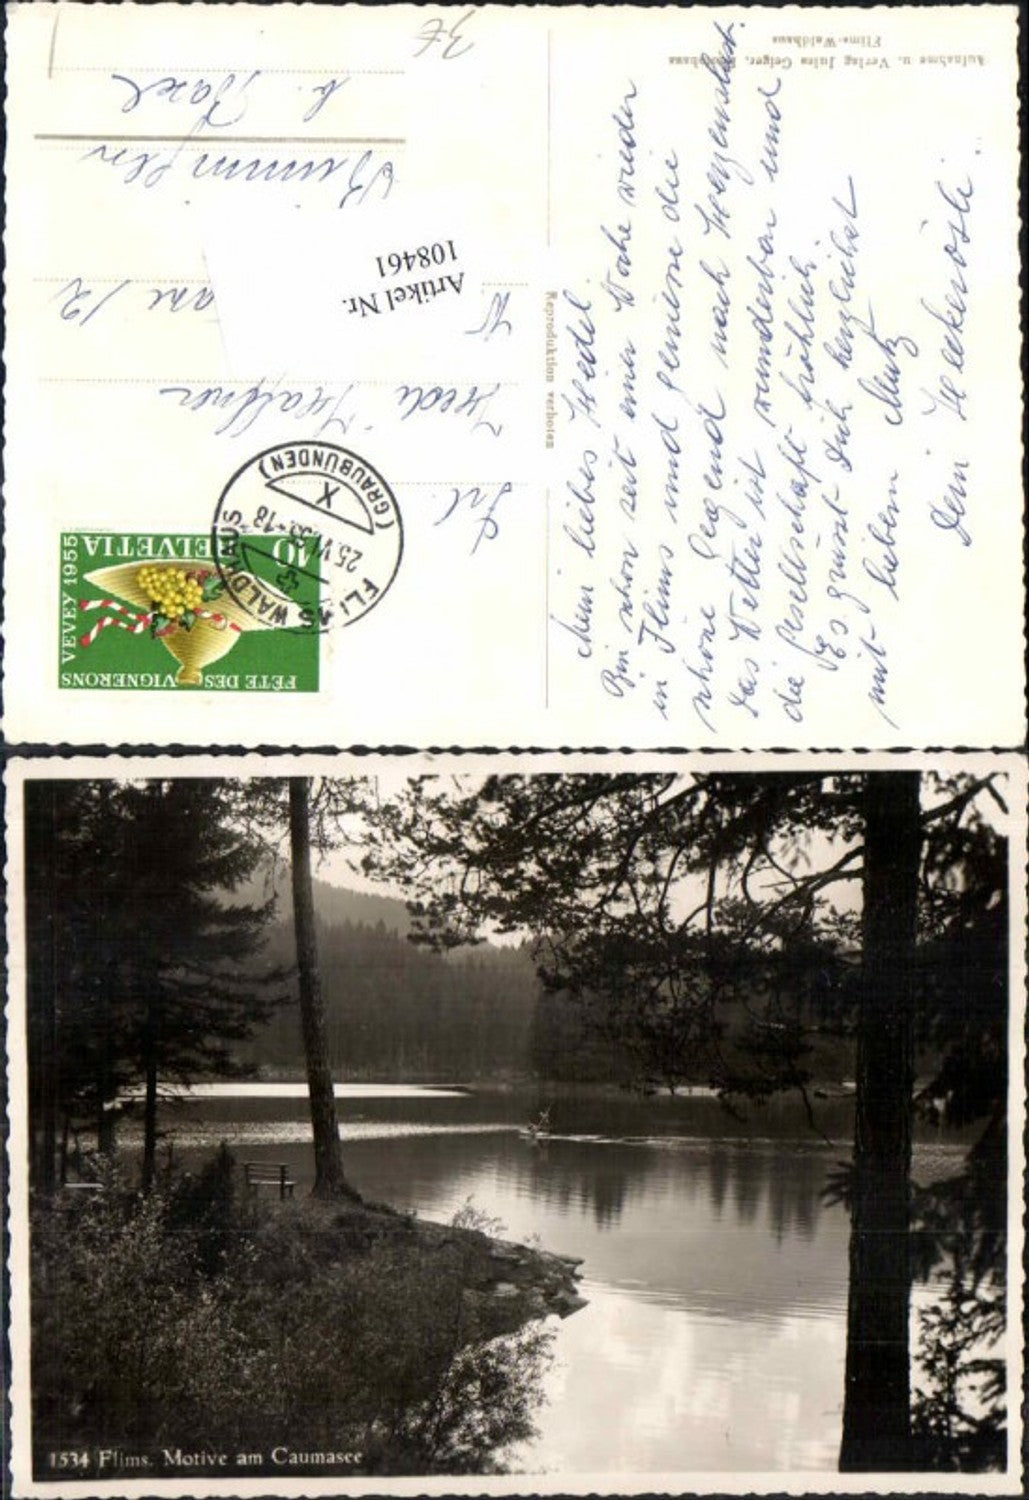 Aufnahme u. Verlag Jules Geiger,
Flims-Waldhaus
Mein liebes Heidel.
Bin schon seit einer Woche wieder
in Flims und geniesse die
schöne Gegend nach Herzenslust.
Das Wetter ist wunderbar und
die Gesellschaft fröhlich.
Es grüsst Dich herzlichst
mit liebem Mutz
Dein
Reproduktion verboten
FÊTE DES VIGNERONS
VEVEY 1955
HELVETIA
10
FLIMS WALDHAUS
25. VI. 55-18
X
(GRAUBÜNDEN)
Frl.
Heidi
12
Artikel Nr.
108461
b. Basel
3€
1534 Flims. Motive am Caumasee